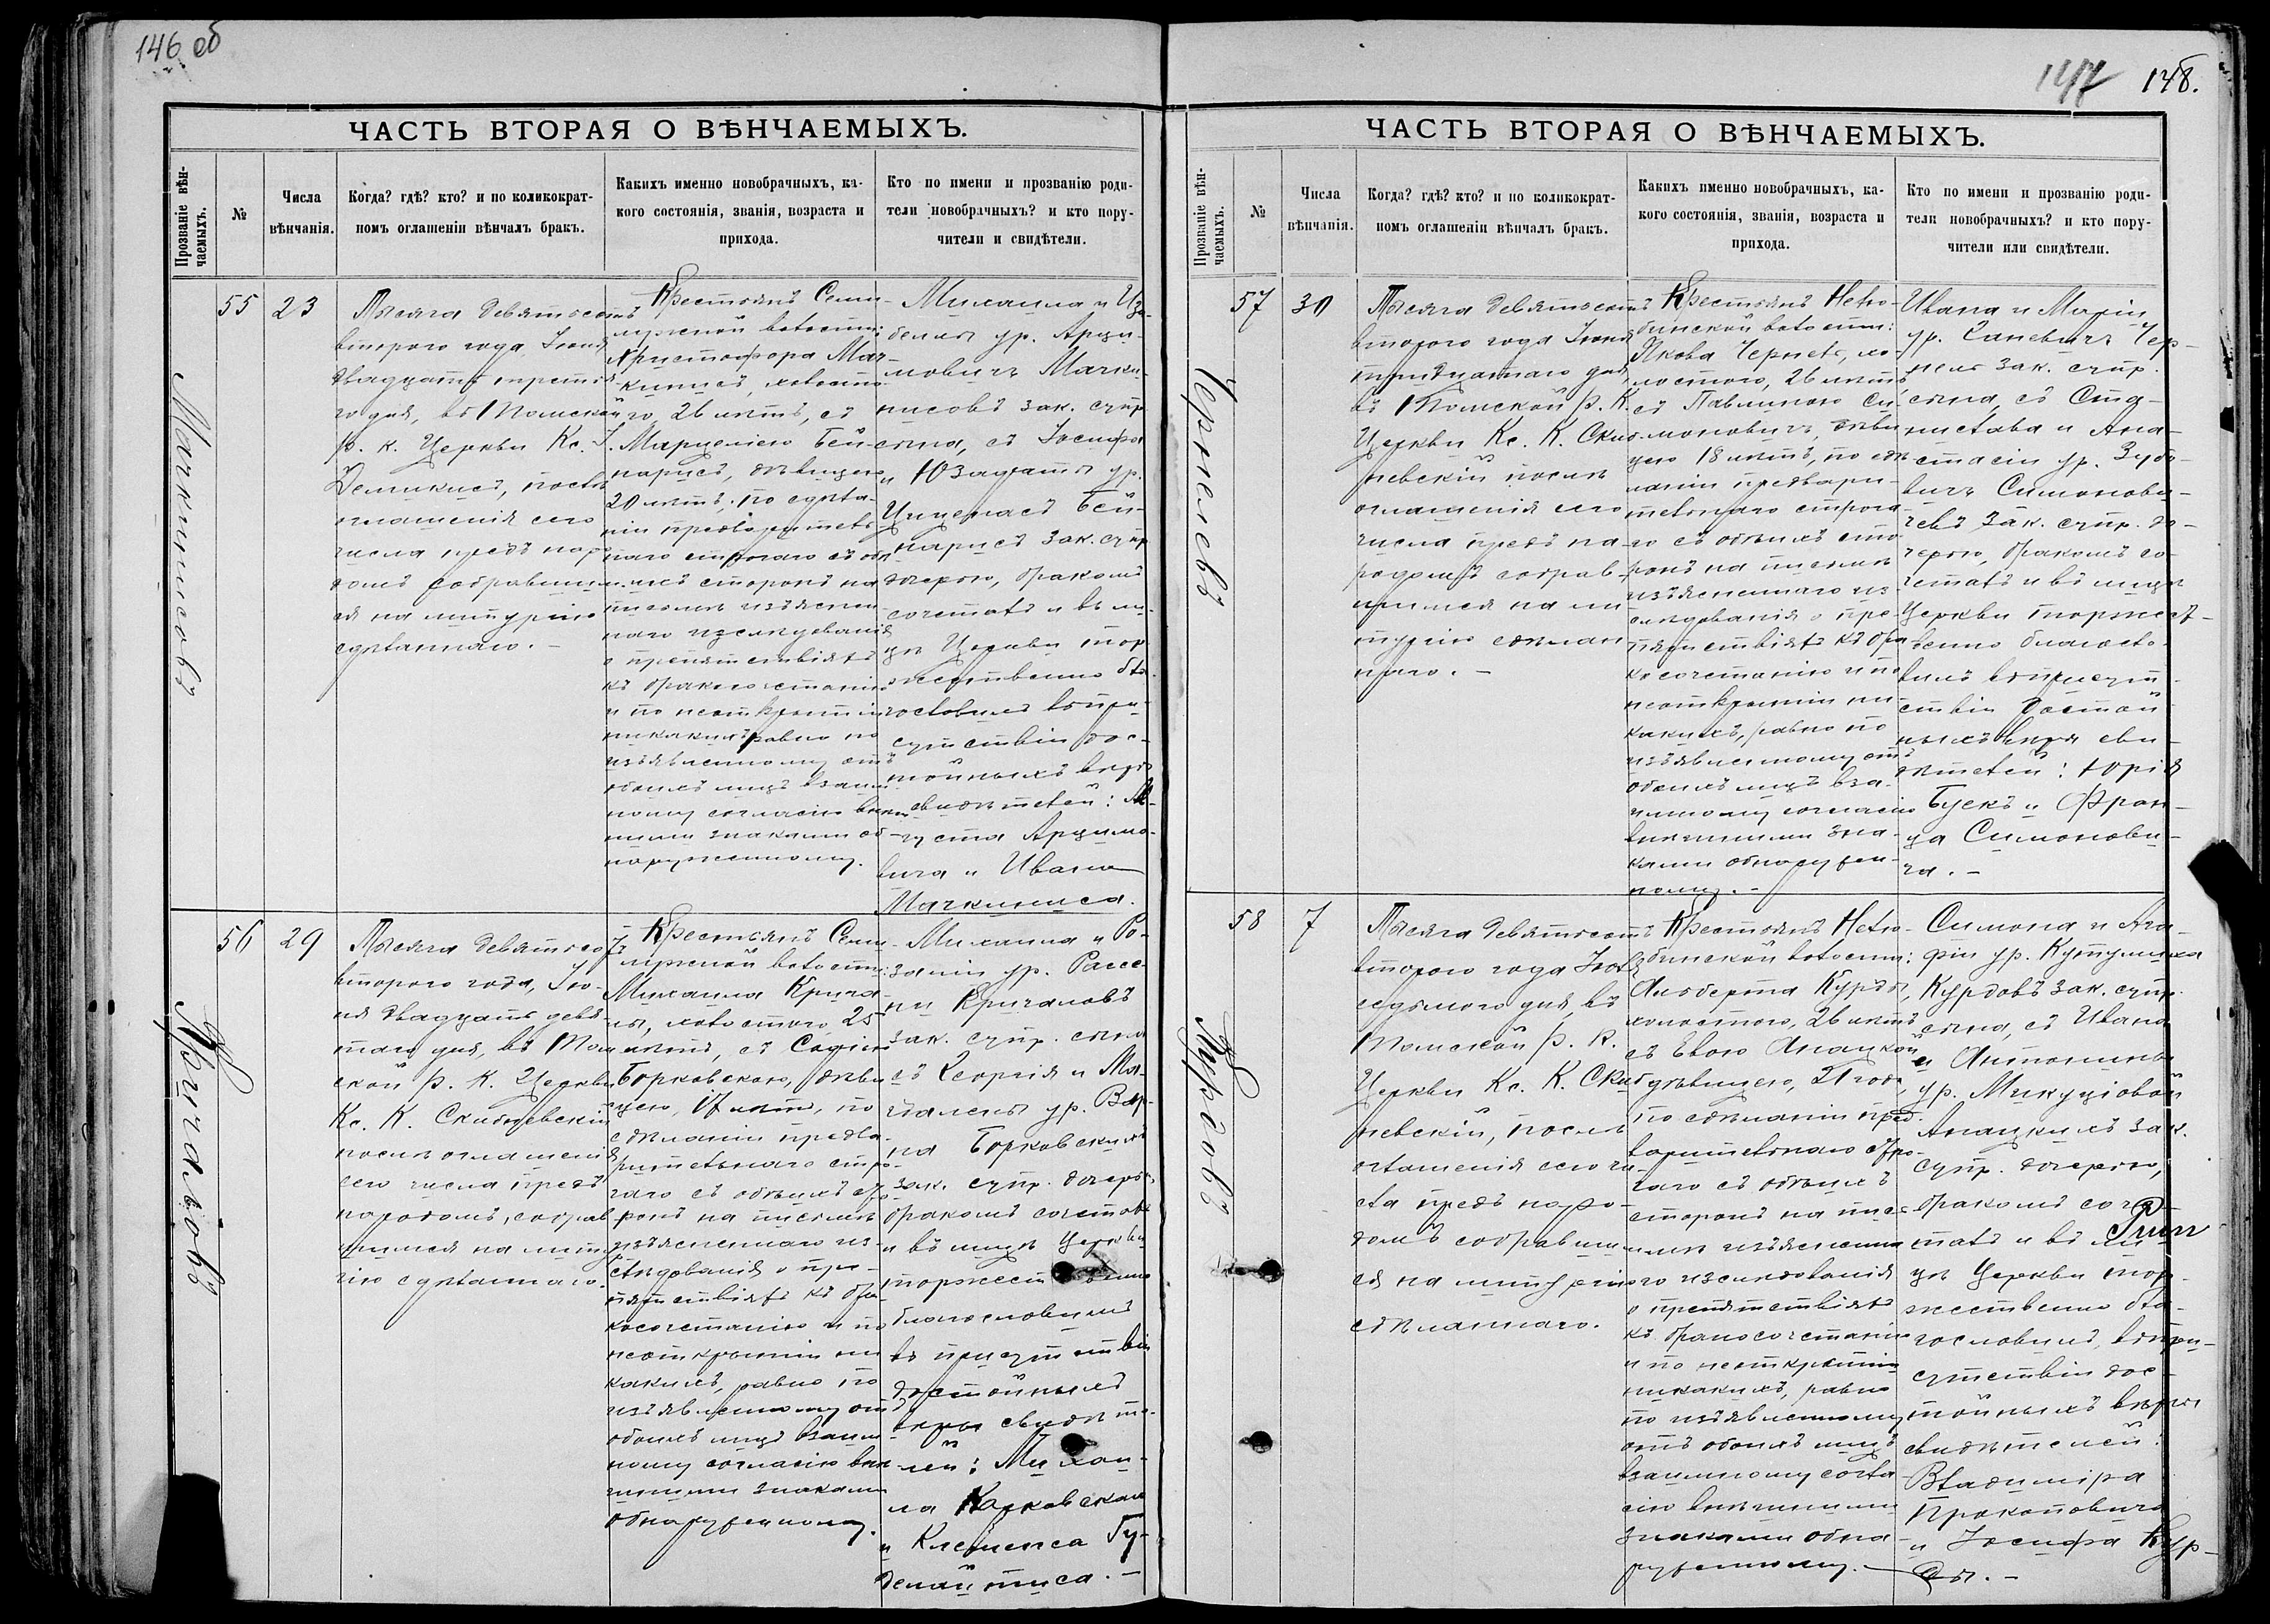 146 об
ЧАСТЬ ВТОРАЯ О ВѢНЧАЕМЫХЪ.
Прозваніе вѣн-
чаемыхъ.
№
Числа
вѣнчанія.
Когда? гдѣ? кто? и по коликократ-
номъ оглашеніи вѣнчалъ бракъ.
Какихъ именно новобрачныхъ, ка-
кого состоянія, званія, возраста и
прихода.
Кто по имени и прозванію роди-
тели новобрачныхъ? и кто пору-
чители и свидѣтели.
Мачкинисовъ
55
23
Тысяча девятьсотъ
второго года Іюня
двадцать третья-
го дня, въ Томской
Р. К. Церкви Кс. І.
Демикисъ, послѣ
оглашенія сего
числа предъ наро-
домъ собравшим-
ся на литургію
сдѣланнаго. –
Крестьянъ Семи-
лужной волости:
Христофора Мач-
кинисъ, холосто-
го, 26 лѣтъ, съ
Марцеліею Бей-
нарисъ, дѣвицею
20 лѣтъ, по сдѣла-
ніи предварительнаго
строгаго съ обѣ-
ихъ сторонъ на
письмѣ изъяснен-
наго изслѣдованія
о препятствіяхъ
къ бракосочетанію
и по неоткрытіи
никакихъ, равно по
изъявленному отъ
обоихъ лицъ взаим-
ному согласію внѣш-
ними знаками об-
наруженному.
Михаила и Иза-
беллы ур. Арци-
мовичъ Мачки-
нисовъ зак. супр.
сына, съ Іосифа
и Юзафаты ур.
Бей-
нарисъ зак. супр.
дочерью, бракомъ
сочеталъ и въ ли-
цѣ Церкви тор-
жественно бла-
гословилъ въ при-
сутствіи дос-
тойныхъ вѣры
свидѣтелей: Ав-
густа Арцимо-
вича и Ивана
Мачкиниса.
Кричаловъ
56
29
Тысяча девятьсотъ
второго года, Ію-
ня двадцать девя-
таго дня, въ Том-
ской Р. К. Церкви
Кс. К. Скибневскій
послѣ оглашенія
сего числа предъ
народомъ, собрав-
шимся на литур-
гію сдѣланнаго.
Крестьянъ Семи-
лужной волости:
Михаила Крича-
лы, холостого 25
лѣтъ, съ Софіею
Борковскою, дѣви-
цею, 17 лѣтъ, по
сдѣланіи предва-
рительнаго стро-
гаго съ обѣихъ сто-
ронъ на письмѣ
изъясненнаго из-
слѣдованія о пре-
пятствіяхъ къ бра-
косочетанію и по
неоткрытіи ни-
какихъ, равно по
изъявленному отъ
обоихъ лицъ взаим-
ному согласію внѣ-
шними знаками
обнаруженному.
Михаила и Ро-
заліи ур.
Кричаловъ
зак. супр. сына
съ Георгія и Маг-
далены ур.
Борковскихъ
зак. супр. дочерью
бракомъ сочеталъ
и въ лицѣ Церкви
торжественно
благословилъ
въ присутствіи
достойныхъ
вѣры свидѣте-
лей: Михаи-
ла Карковскаго
и Клеменса Гу-
147
148.
ЧАСТЬ ВТОРАЯ О ВѢНЧАЕМЫХЪ.
Прозваніе вѣн-
чаемыхъ.
№
Числа
вѣнчанія.
Когда? гдѣ? кто? и по коликократ-
номъ оглашеніи вѣнчалъ бракъ.
Какихъ именно новобрачныхъ, ка-
кого состоянія, званія, возраста и
прихода.
Кто по имени и прозванію роди-
тели новобрачныхъ? и кто пору-
чители или свидѣтели.
Чернелевъ
57
30
Тысяча девятьсотъ
второго года Іюня
тридцатаго дня,
въ Томской Р. К.
Церкви Кс. К. Скиб-
невскій послѣ
оглашенія сего
числа предъ на-
родомъ собрав-
шимся на ли-
тургію сдѣлан-
наго. –
Крестьянъ Нелю-
бинской волости:
Якова Чернель, хо-
лостого, 26 лѣтъ
съ Павлиною Си-
моновичъ, дѣви-
цею 18 лѣтъ, по сдѣ-
ланіи предвари-
тельнаго строга-
го съ обѣихъ сто-
ронъ на письмѣ
изъясненнаго из-
слѣдованія о пре-
пятствіяхъ къ бра-
косочетанію и по
неоткрытіи ни-
какихъ, равно по
изъявленному отъ
обоихъ лицъ вза-
имному согласію
внѣшними зна-
ками обнаружен-
ному. –
Ивана и Маріи
ур. Саневичъ Чер-
нель зак. супр.
сына, съ Ста-
нислава и Ана-
стасіи ур. Зубо-
вичъ Симонови-
чевъ, зак. супр. до-
черью, бракомъ со-
четалъ и въ лицѣ
Церкви торжест-
венно благосло-
вилъ въ присут-
ствіи достой-
ныхъ вѣры сви-
дѣтелей: Юрія
Буекъ и Фран-
ца Симонови-
ча. –
Курдовъ
58
7
Тысяча девятьсотъ
второго года Іюля
седьмого дня, въ
Томской Р. К.
Церкви Кс. К. Скиб-
невскій, послѣ
оглашенія сего чи-
сла предъ наро-
домъ собравшим-
ся на литургію
сдѣланнаго.
Крестьянъ Нелю-
бинской волости:
Альберта Курды,
холостого, 26 лѣтъ
съ Евою Анацкой
дѣвицею, 21 года,
по сдѣланіи пред-
варительнаго стро-
гаго съ обѣихъ
сторонъ на пись-
мѣ изъясненна-
го изслѣдованія
о препятствіяхъ
къ бракосочетанію
и по неоткрытіи
никакихъ, равно
по изъявленному
отъ обоихъ лицъ
взаимному согла-
сію внѣшними
знаками обна-
руженному. –
Симона и Ага-
фіи ур.
Курдовъ зак. супр.
сына, съ Ивана
и Антонины
ур. Микуціовой
Анацкихъ зак.
супр. дочерью,
бракомъ соче-
талъ и въ ли-
цѣ Церкви тор-
жественно бла-
гословилъ, въ при-
сутствіи дос-
тойныхъ вѣры
свидѣтелей:
Владиміра
Прокоповича
и Іосифа Кур-
ды. –